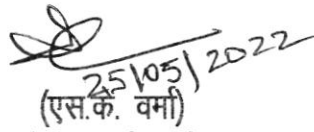 25/05/2022
(एस.के. वर्मा)